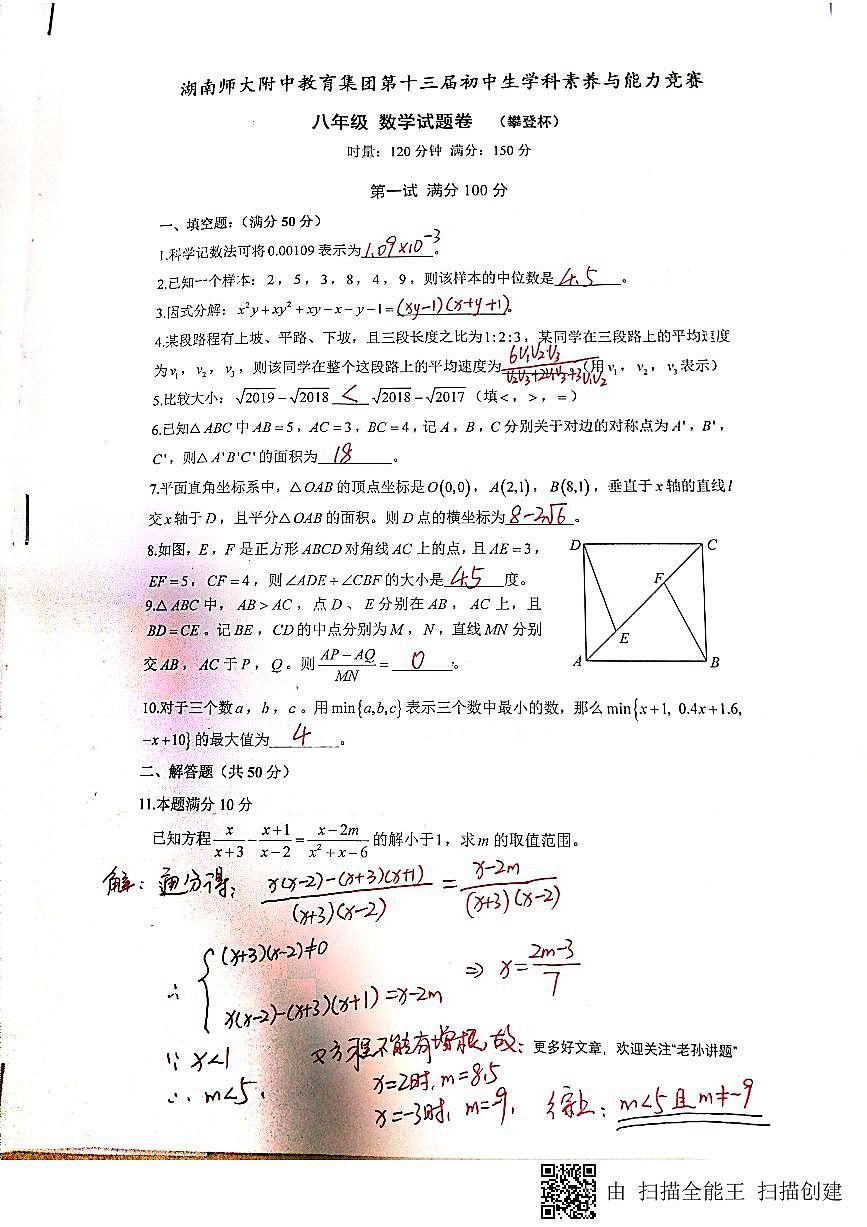 湖南师大附中教育集团第十三届初中生学科素养与能力竞赛
八年级 数学试题卷 (攀登杯)
时量：120分钟 满分：150分
第一试 满分100分
一、填空题：(满分50分)
1.科学记数法可将0.00109表示为1.09×10⁻³。
2.已知一个样本：2，5，3，8，4，9，则该样本的中位数是4.5。
3.因式分解：x²y+xy²+xy-x-y-1=(xy-1)(x+y+1)。
4.某段路程有上坡、平路、下坡，且三段长度之比为1:2:3，某同学在三段路上的平均速度
为v₁，v₂，v₃，则该同学在整个这段路上的平均速度为6V₁V₂V₃/(V₂V₃+2V₁V₃+3V₁V₂)(用v₁，v₂，v₃表示)
5.比较大小：√2019-√2018 < √2018-√2017 (填<，>，=)
6.已知△ABC中AB=5，AC=3，BC=4，记A，B，C分别关于对边的对称点为A'，B'，
C'，则△A'B'C'的面积为18。
7.平面直角坐标系中，△OAB的顶点坐标是O(0,0)，A(2,1)，B(8,1)，垂直于x轴的直线l
交x轴于D，且平分△OAB的面积。则D点的横坐标为8-2√6。
8.如图，E，F是正方形ABCD对角线AC上的点，且AE=3，
EF=5，CF=4，则∠ADE+∠CBF的大小是45度。
D C
F
E
A B
9.△ABC中，AB>AC，点D、E分别在AB，AC上，且
BD=CE。记BE，CD的中点分别为M，N，直线MN分别
交AB，AC于P，Q。则(AP-AQ)/MN=0。
10.对于三个数a，b，c。用min{a,b,c}表示三个数中最小的数，那么min{x+1, 0.4x+1.6,
-x+10}的最大值为4。
二、解答题(共50分)
11.本题满分10分
已知方程x/(x+3)-(x+1)/(x-2)=(x-2m)/(x²+x-6)的解小于1，求m的取值范围。
解：通分得：(x(x-2)-(x+3)(x+1))/((x+3)(x-2))=(x-2m)/((x+3)(x-2))
∴{(x+3)(x-2)≠0
x(x-2)-(x+3)(x+1)=x-2m ⇒ x=(2m-3)/7
∵x<1 又方程不能有增根，故： 更多好文章，欢迎关注“老孙讲题”
∴m<5. x=2时，m=8.5
x=-3时，m=-9. 综上：m<5且m≠-9
由 扫描全能王 扫描创建